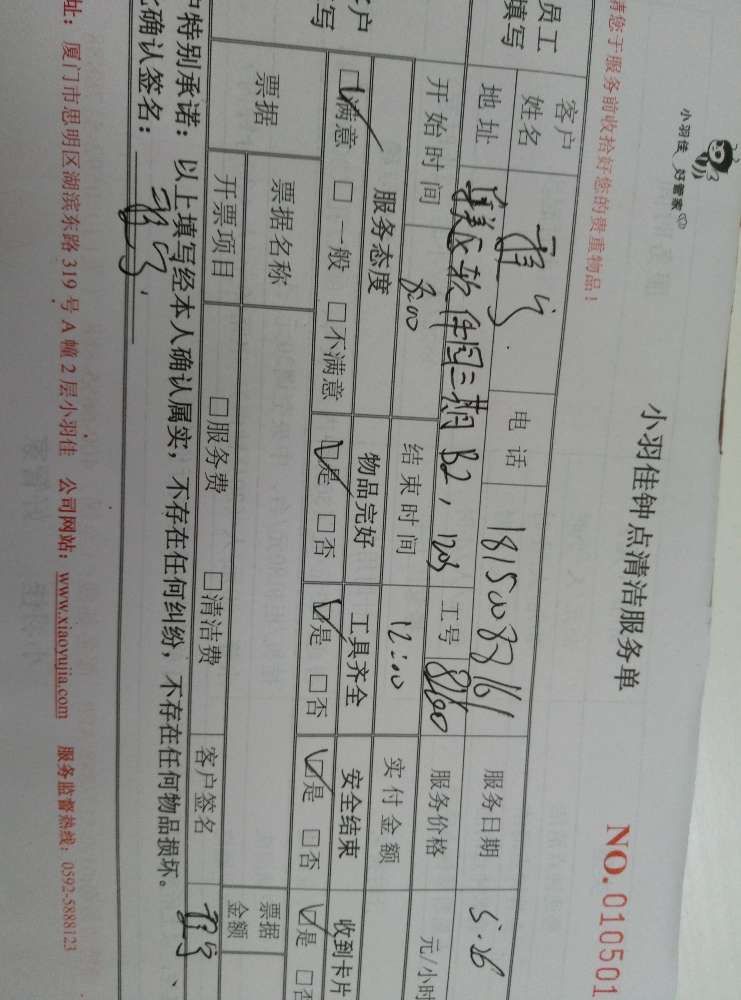 小羽佳 好管家
小羽佳钟点清洁服务单
NO. 010501
请您于服务前收拾好您的贵重物品！
员工
填写
客户
姓名
电话
服务日期 5.26
地址 软件园二期 B2，
工号 8160
服务价格
元/小时
开始时间 8:00
结束时间 12:00
实付金额
服务态度 物品完好 工具齐全 安全结束 收到卡片
☑满意 □一般 □不满意 ☑是 □否 ☑是 □否 ☑是 □否 ☑是 □否
票据
票据名称
票据
金额
开票项目 □服务费 □清洁费 客户签名
特别承诺：以上填写经本人确认属实，不存在任何纠纷，不存在任何物品损坏。
确认签名：
址：厦门市思明区湖滨东路 319 号 A 幢 2 层小羽佳 公司网站：www.xiaoyujia.com 服务监督热线：0592-5888123